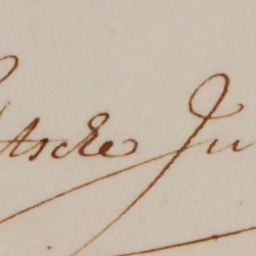 tscke Ju